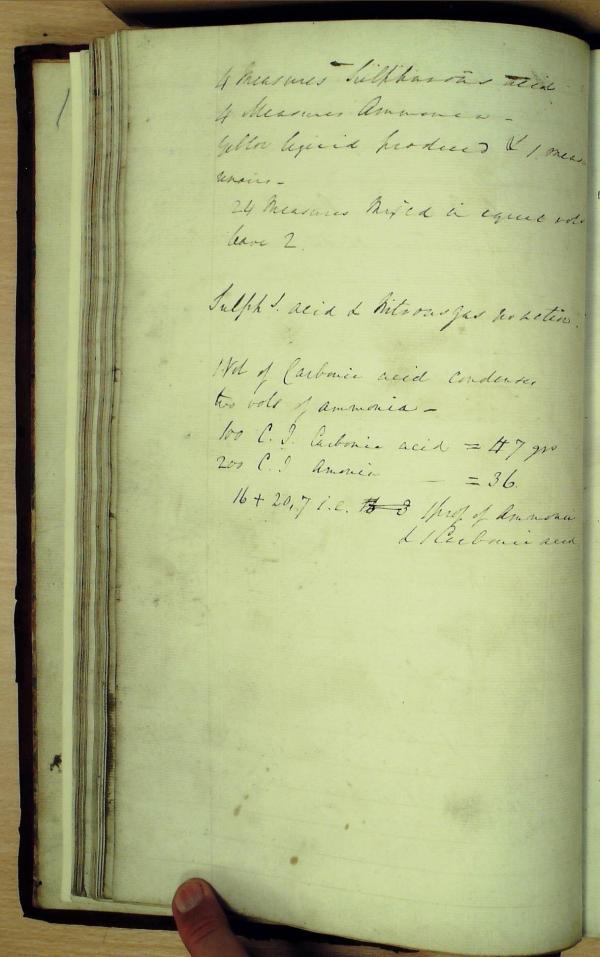 4 Measures Sulphurous acid
4 Measures Ammonia -
Yellow liquid produced & 1 meas
remain -
24 Measures Mixed in equal vols
leave 2.
Sulph S. acid & Nitrous gas no action.
1 Vol of Carbonic acid condenses
two vols of ammonia -
100 C. I. Carbonic acid = 47 grs
200 C. I. Amonia — = 36.
16 + 20,7 i.e. 1 prop. of Ammonia
& 1 Carbonic acid